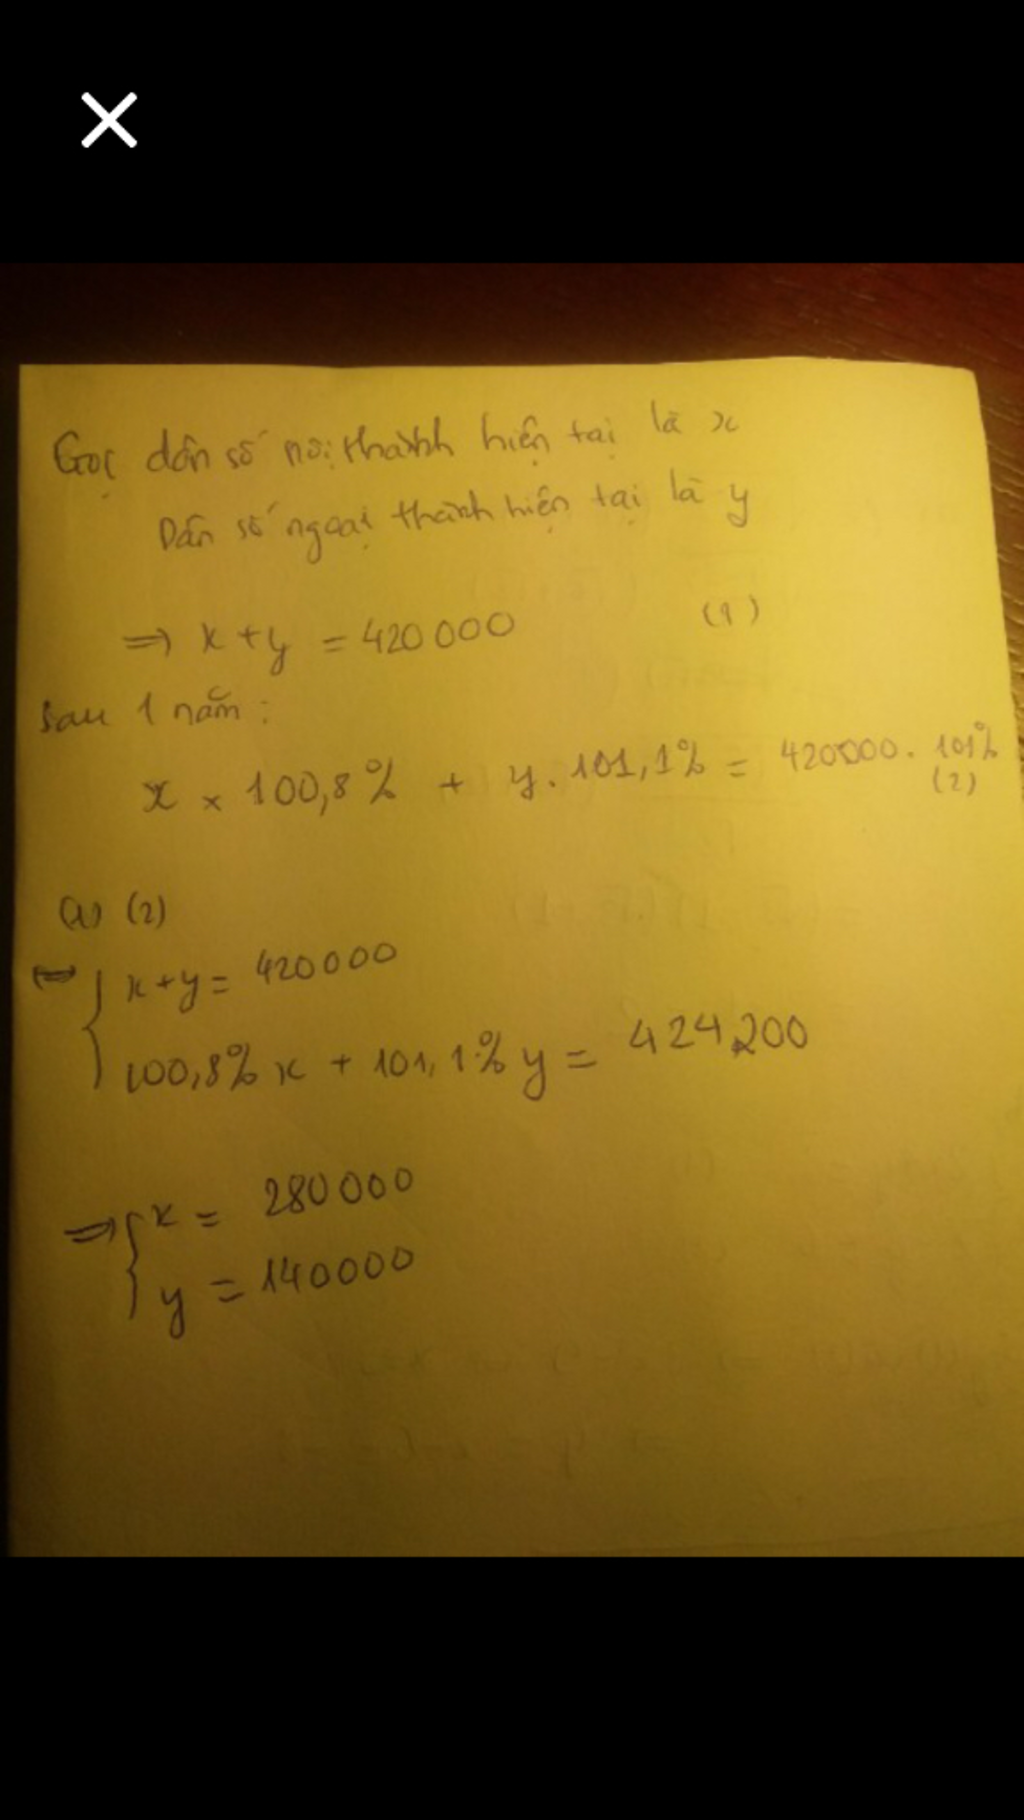 Gọi dân số nội thành hiện tại là x
Dân số ngoại thành hiện tại là y
=> x + y = 420 000 (1)
Sau 1 năm :
x × 100,8% + y . 101,1% = 420000 . 101% (2)
(1) (2)
<=> { x + y = 420000
100,8% x + 101,1% y = 424200
=> { x = 280000
y = 140000